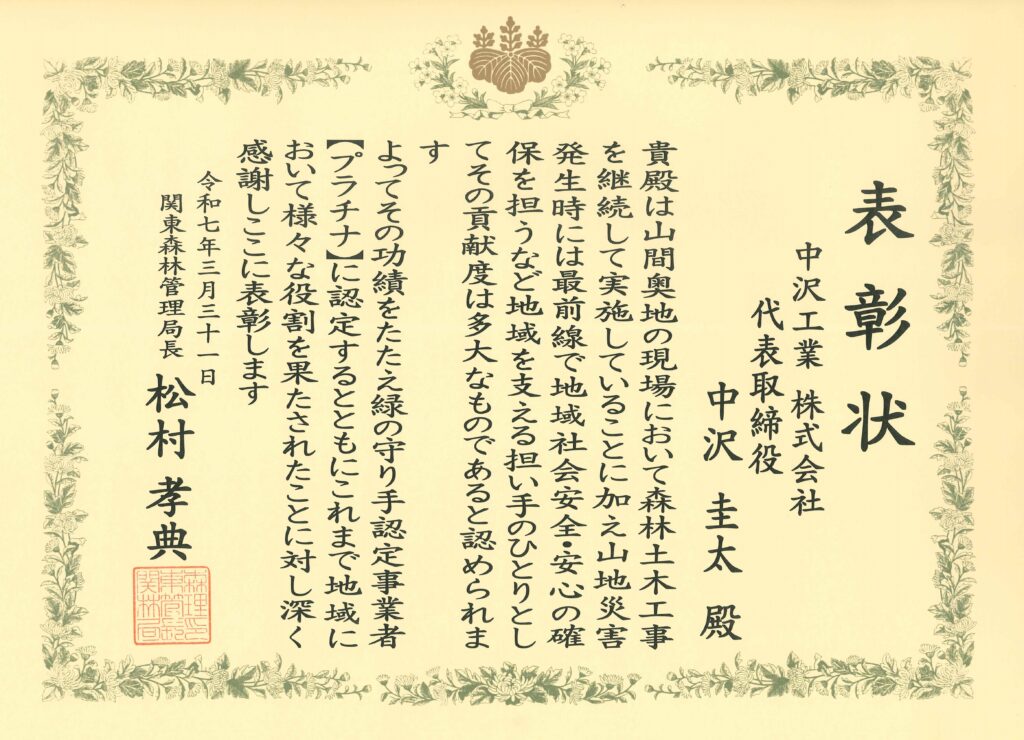 表彰状
中沢工業 株式会社
代表取締役
中沢 圭太 殿
貴殿は山間奥地の現場において森林土木工事
を継続して実施していることに加え山地災害
発生時には最前線で地域社会安全・安心の確
保を担うなど地域を支える担い手のひとりとし
てその貢献度は多大なものであると認められま
す
よってその功績をたたえ緑の守り手認定事業者
【プラチナ】に認定するとともにこれまで地域に
おいて様々な役割を果たされたことに対し深く
感謝しここに表彰します
令和七年三月三十一日
関東森林管理局長
松村 孝典